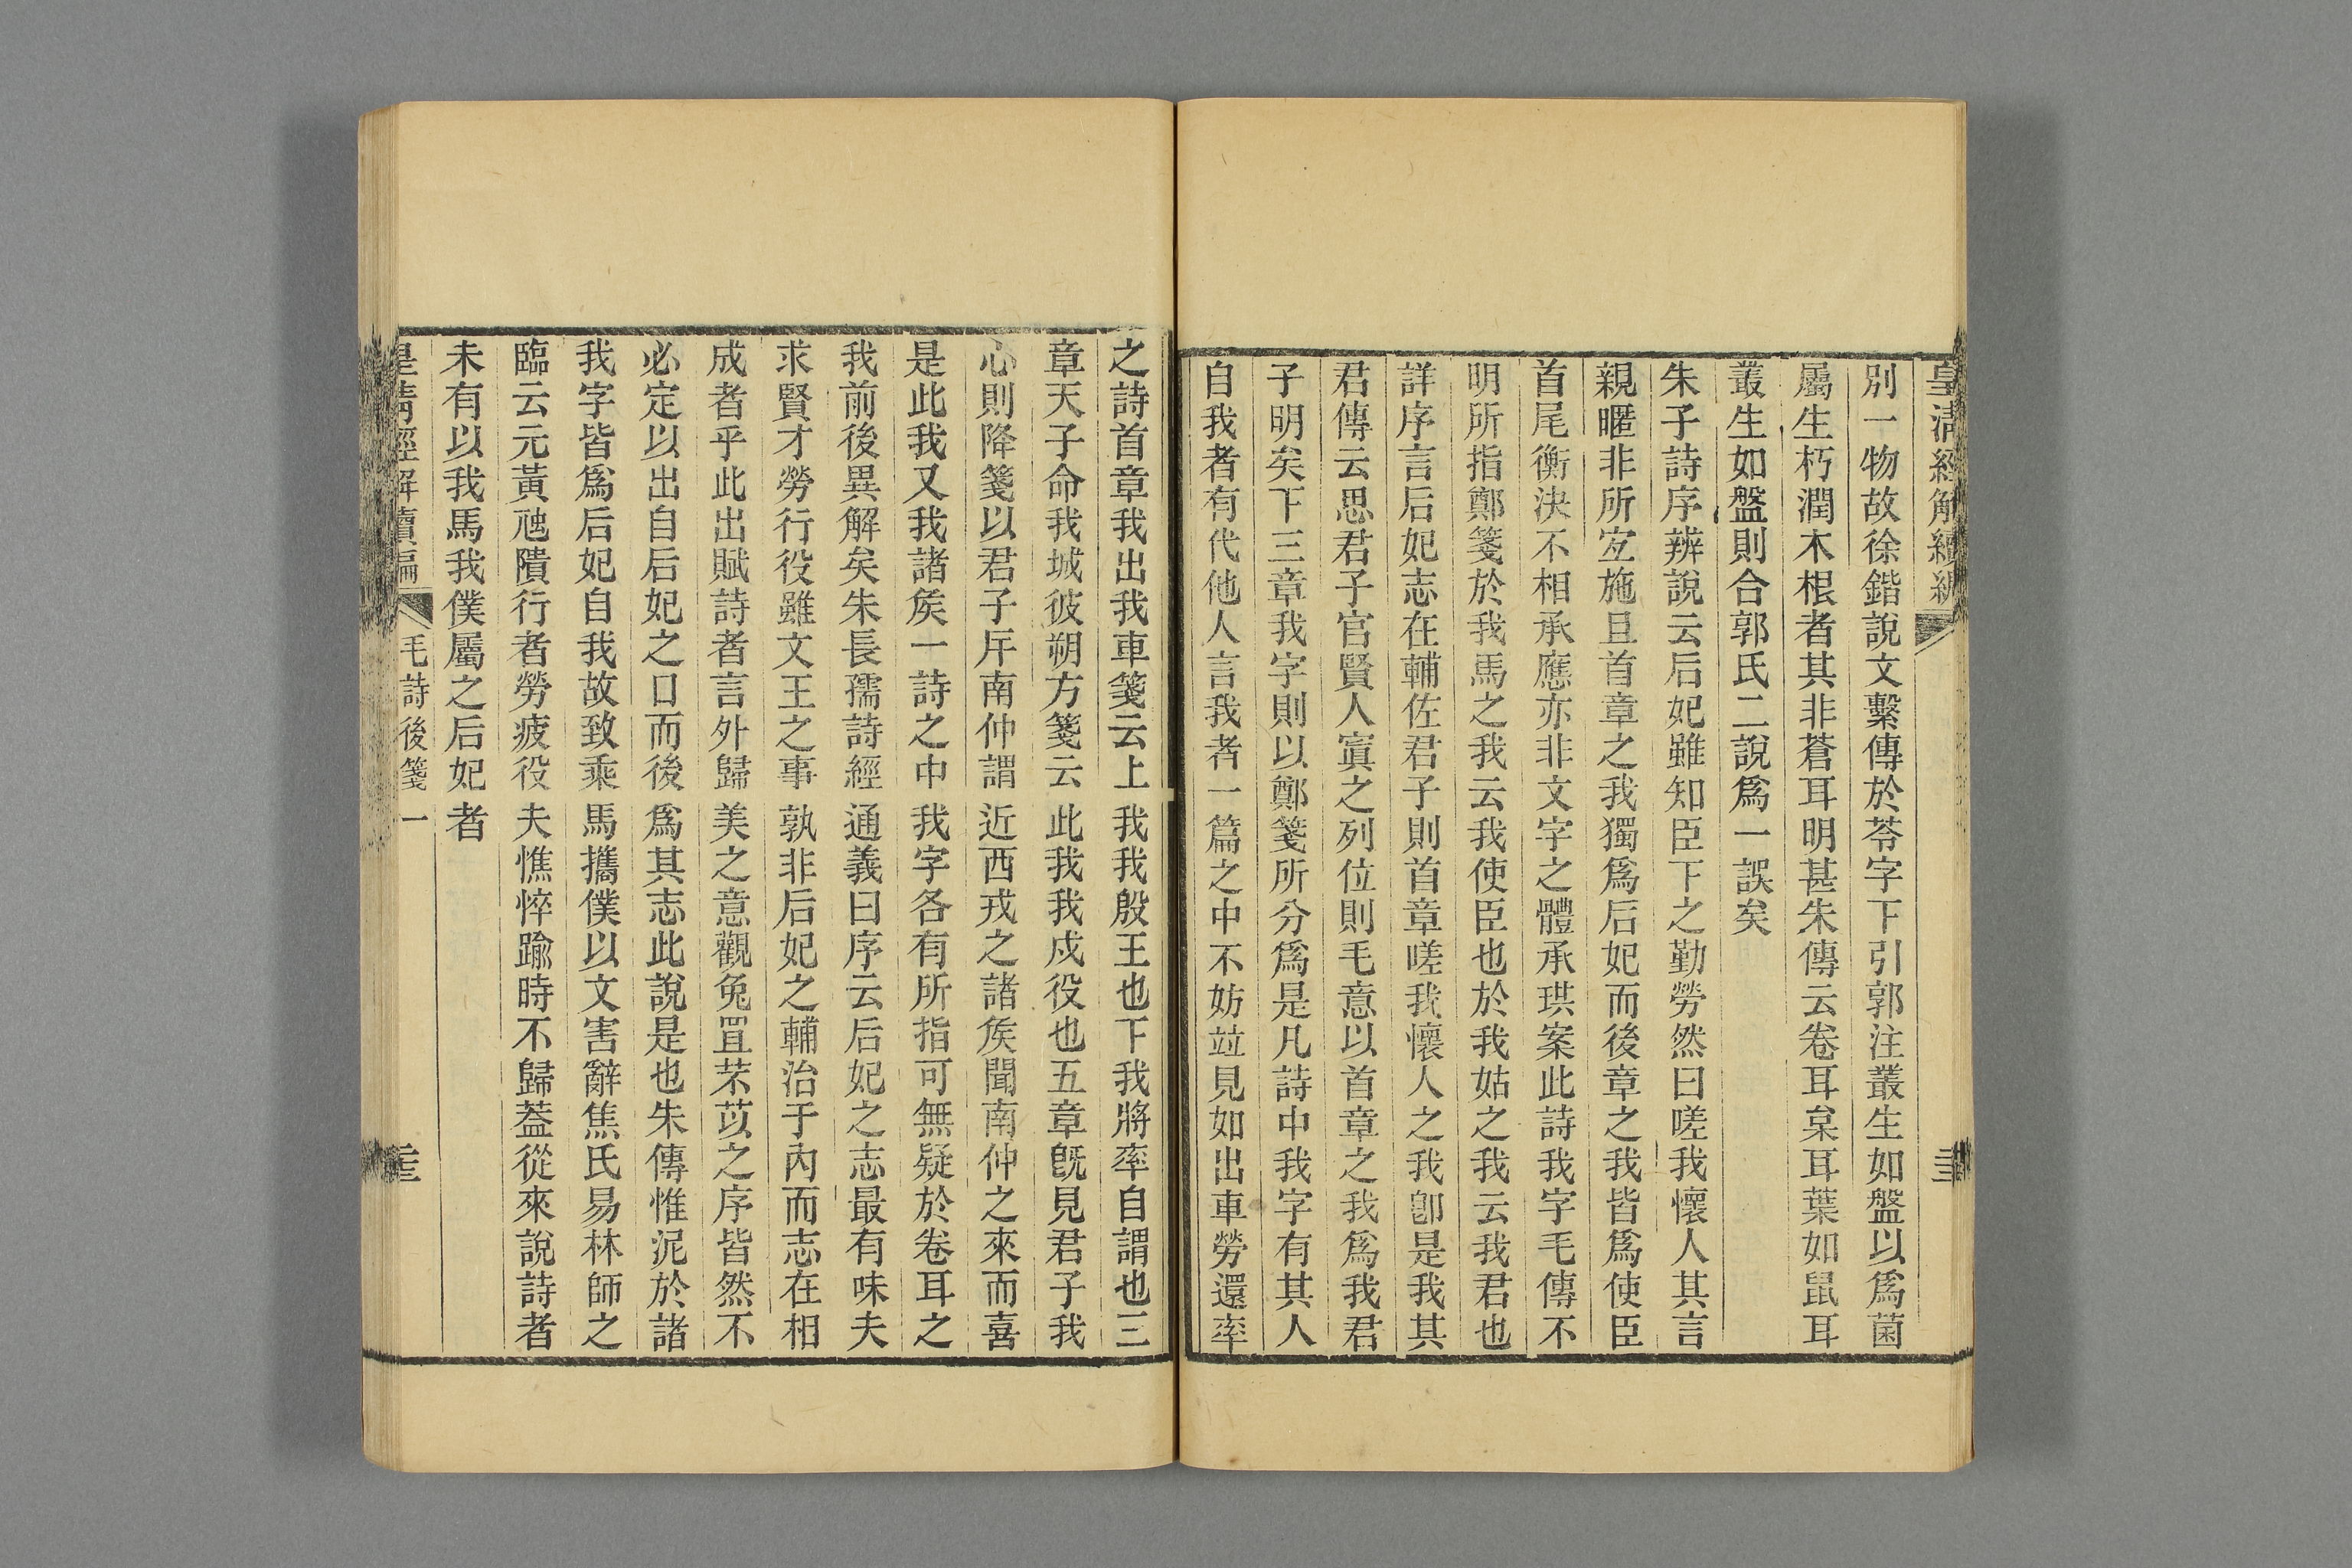 皇清經解續編
別一物故徐鍇說文繫傳於苓字下引郭注叢生如盤以爲菌
屬生朽潤木根者其非蒼耳明甚朱傳云卷耳枲耳葉如鼠耳
叢生如盤則合郭氏二說爲一誤矣
朱子詩序辨說云后妃雖知臣下之勤勞然曰嗟我懷人其言
親暱非所宐施且首章之我獨爲后妃而後章之我皆爲使臣
首尾衡決不相承應亦非文字之體承珙案此詩我字毛傳不
明所指鄭箋於我馬之我云我使臣也於我姑之我云我君也
詳序言后妃志在輔佐君子則首章嗟我懷人之我卽是我其
君傳云思君子官賢人寘之列位則毛意以首章之我爲我君
子明矣下三章我字則以鄭箋所分爲是凡詩中我字有其人
自我者有代他人言我者一篇之中不妨竝見如出車勞還率
之詩首章我出我車箋云上我我殷王也下我將率自謂也三
章天子命我城彼朔方箋云此我我戍役也五章旣見君子我
心則降箋以君子斥南仲謂近西戎之諸矦聞南仲之來而喜
是此我又我諸矦一詩之中我字各有所指可無疑於卷耳之
我前後異解矣朱長孺詩經通義曰序云后妃之志最有味夫
求賢才勞行役雖文王之事孰非后妃之輔治于內而志在相
成者乎此出賦詩者言外歸美之意觀兔罝芣苡之序皆然不
必定以出自后妃之口而後爲其志此說是也朱傳惟泥於諸
我字皆爲后妃自我故致乘馬攜僕以文害辭焦氏易林師之
臨云元黃虺隤行者勞疲役夫憔悴踰時不歸葢從來說詩者
未有以我馬我僕屬之后妃者
皇清經解續編 毛詩後箋一